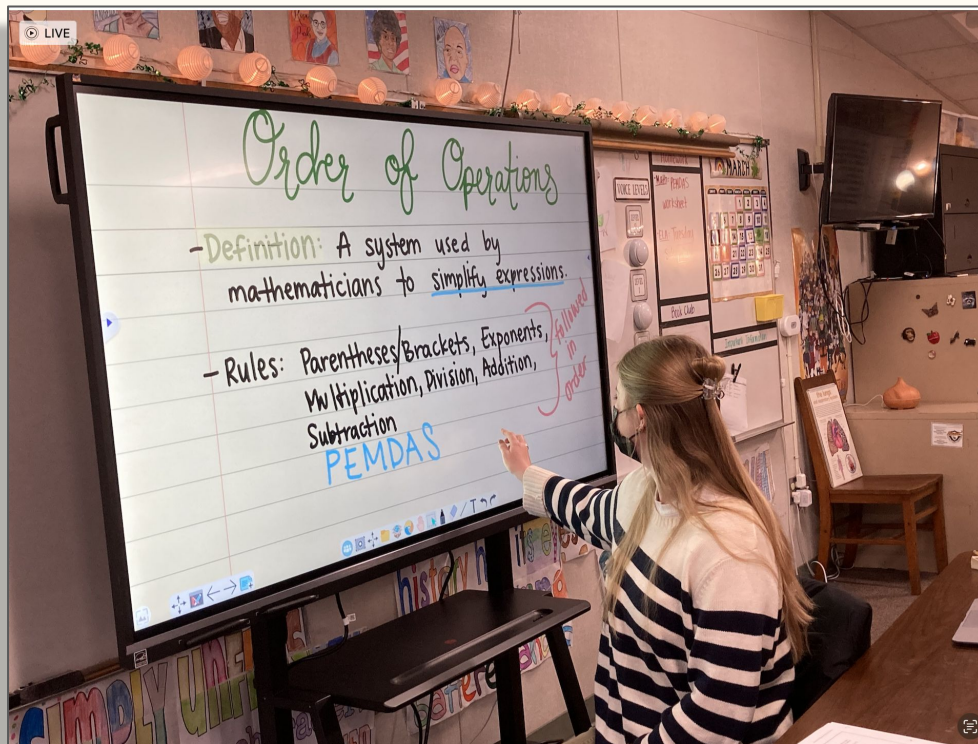 LIVE
Order of Operations
-Definition: A system used by
mathematicians to simplify expressions.
-Rules: Parentheses/Brackets, Exponents,
Multiplication, Division, Addition,
Subtraction
followed
in
order
PEMDAS
VOICE LEVELS
PEMDAS
worksheet
ELA Tuesday
Book Club
MARCH
SIMPLY
history
itself